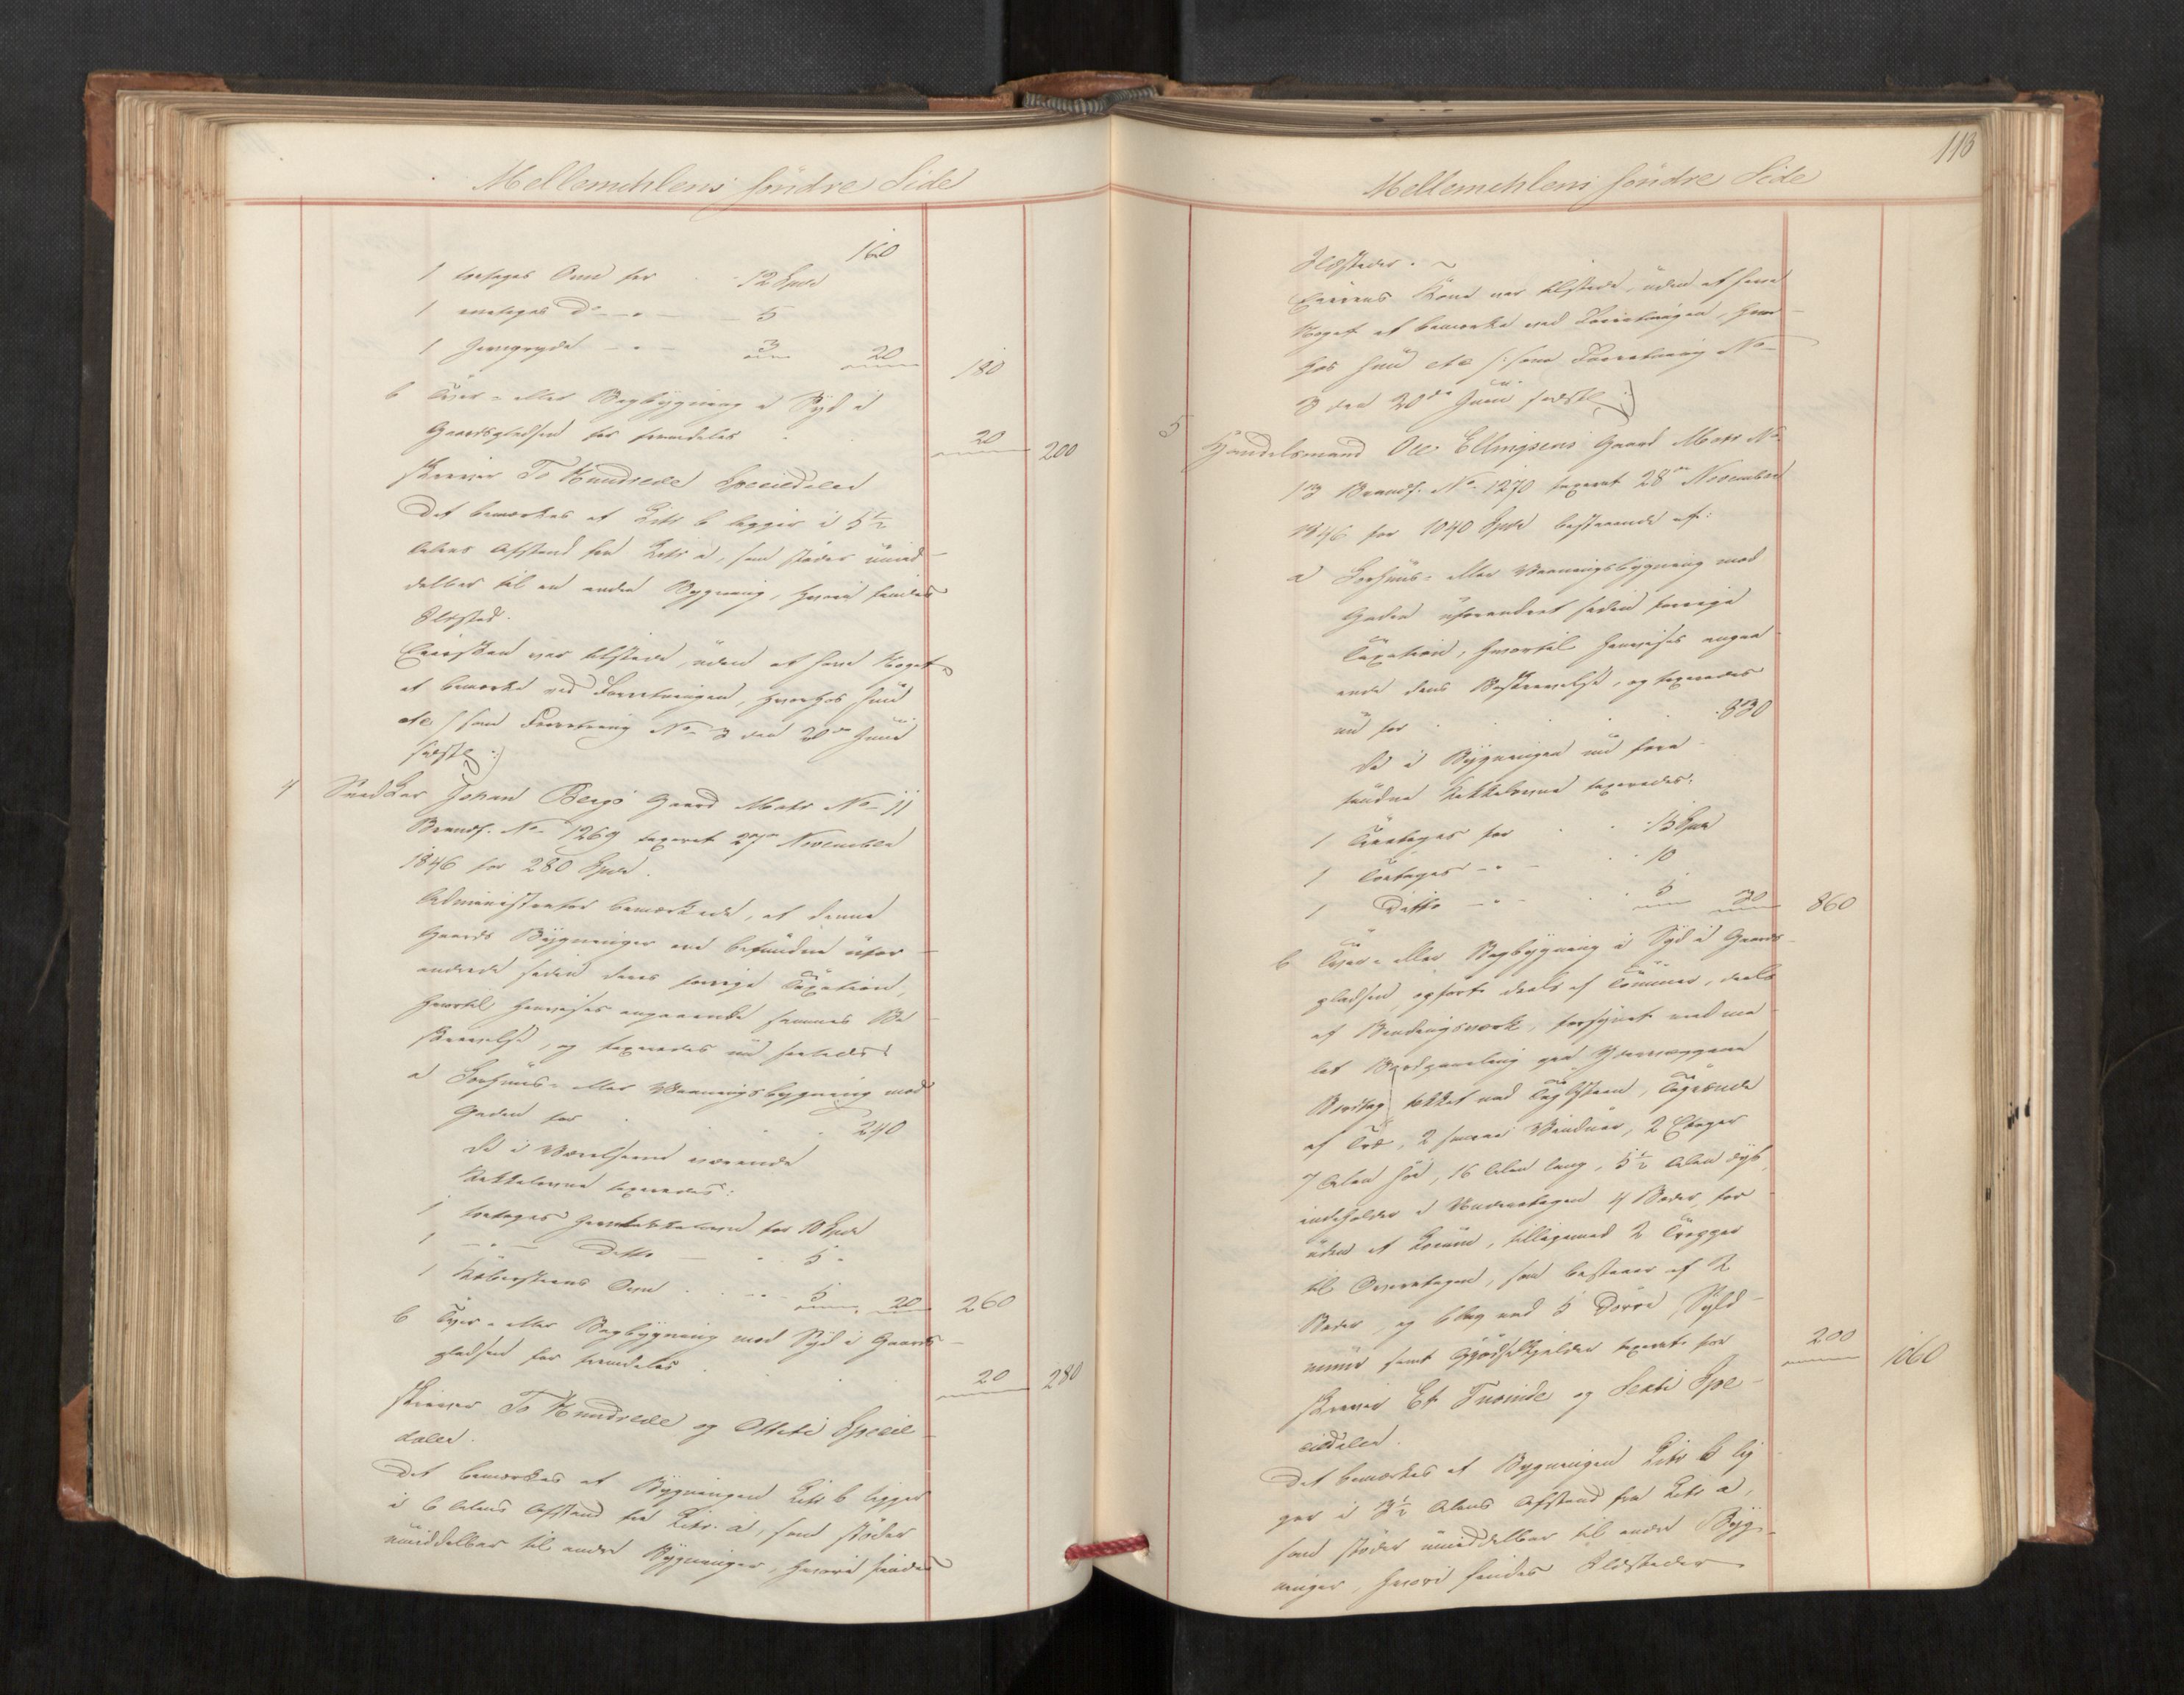 Mellemihlens søndre Side
160
1 toetages Ovn for 12 Spd
1 eenetages Do - " - 5
1 Jerngryde - " - 3 20 180
b Tver- eller Bagbygning i Syd i
Gaardspladsen for fremdeles 20 200
skriver To Hundrede Speciedaler
Det bemærkes at Litr b ligger i 5½
Alens Afstand fra Litr a, som støder umid-
delbar til en anden Bygning, hvori findes
Ildsted.
Eiersken var tilstede, uden at have Noget
at bemærke ved Forretningen, hvorhos hun
etc /: som Forretning No 3 den 20de Juni
sidstl :/
4 Snedker Johan Bergs Gaard Matr No 11
Brandf. No 1269 taxeret 27de November
1846 for 280 Spd.
Administrator bemærkede, at denne
Gaards Bygninger ere befundne ufor-
andrede siden deres forrige Taxation,
hvortil henvises angaaende sammes Be-
skrivelse, og taxeredes nu saaledes
a Forhuus- eller Vaaningsbygning mod
Gaden for 240
De i Værelserne værende
Kakkelovne taxeredes:
1 toetages Jernkakkelovn for 10 Spd
1 - " - Ditto - 5 -
1 Klebersteens Ovn 5 20 260
b Tver- eller Bagbygning mod Syd i Gaards-
pladsen for fremdeles 20 280
skriver To Hundrede og Otteti Specie-
daler.
Det bemærkes at Bygningen Litr b ligger
i 6 Alens Afstand fra Litr. a, som støder
umiddelbar til andre Bygninger, hvori findes
113
Mellemihlens søndre Side
Ildsteder. ~
Eierens Kone var tilstede, uden at have
Noget at bemærke ved Forretningen, hvor-
hos hun etc /: som Forretning No
3 den 20de Juni sidstl :/
5 Handelsmand Ole Ellingsens Gaard Matr No
13 Brandf. No 1270 taxeret 28de November
1846 for 1040 Spd bestaaende af:
a Forhuus- eller Vaaningsbygning mod
Gaden uforandret siden forrige
Taxation, hvortil henvises angaa-
ende dens Beskrivelse, og taxeredes
nu for 830
De i Bygningen nu fore-
fundne Kakkelovne taxeredes:
1 Treetages for 15 Spd
1 Toetages - " - 10
1 Ditto - " - 5 30 860
b Tver- eller Bagbygning i Syd i Gaards-
pladsen, opført deels af Tømmer, deels
af Bindingsværk, forsynet med ma-
let Bordpaneling paa Ydervæggene
Bordtag tekket med Tagsteen, Tagrende
af Træ, 2 smaae Vinduer, 2 Etager
7 Alen høi, 16 Alen lang, 5½ Alen dyb,
indeholder i Underetagen 4 Boder, for-
uden et Locum, tilligemed 2 Trapper
til Overetagen, som bestaaer af 2
Boder og b.. med 5 Dørre, Syld-
muur samt Gjødselkjelder taxeret for 200 1060
skriver Et Tusinde og Sexti Spe-
ciedaler.
Det bemærkes at Bygningen Litr b lig-
ger i 3½ Alens Afstand fra Litr a,
som støder umiddelbar til andre Byg-
ninger, hvori findes Ildsteder